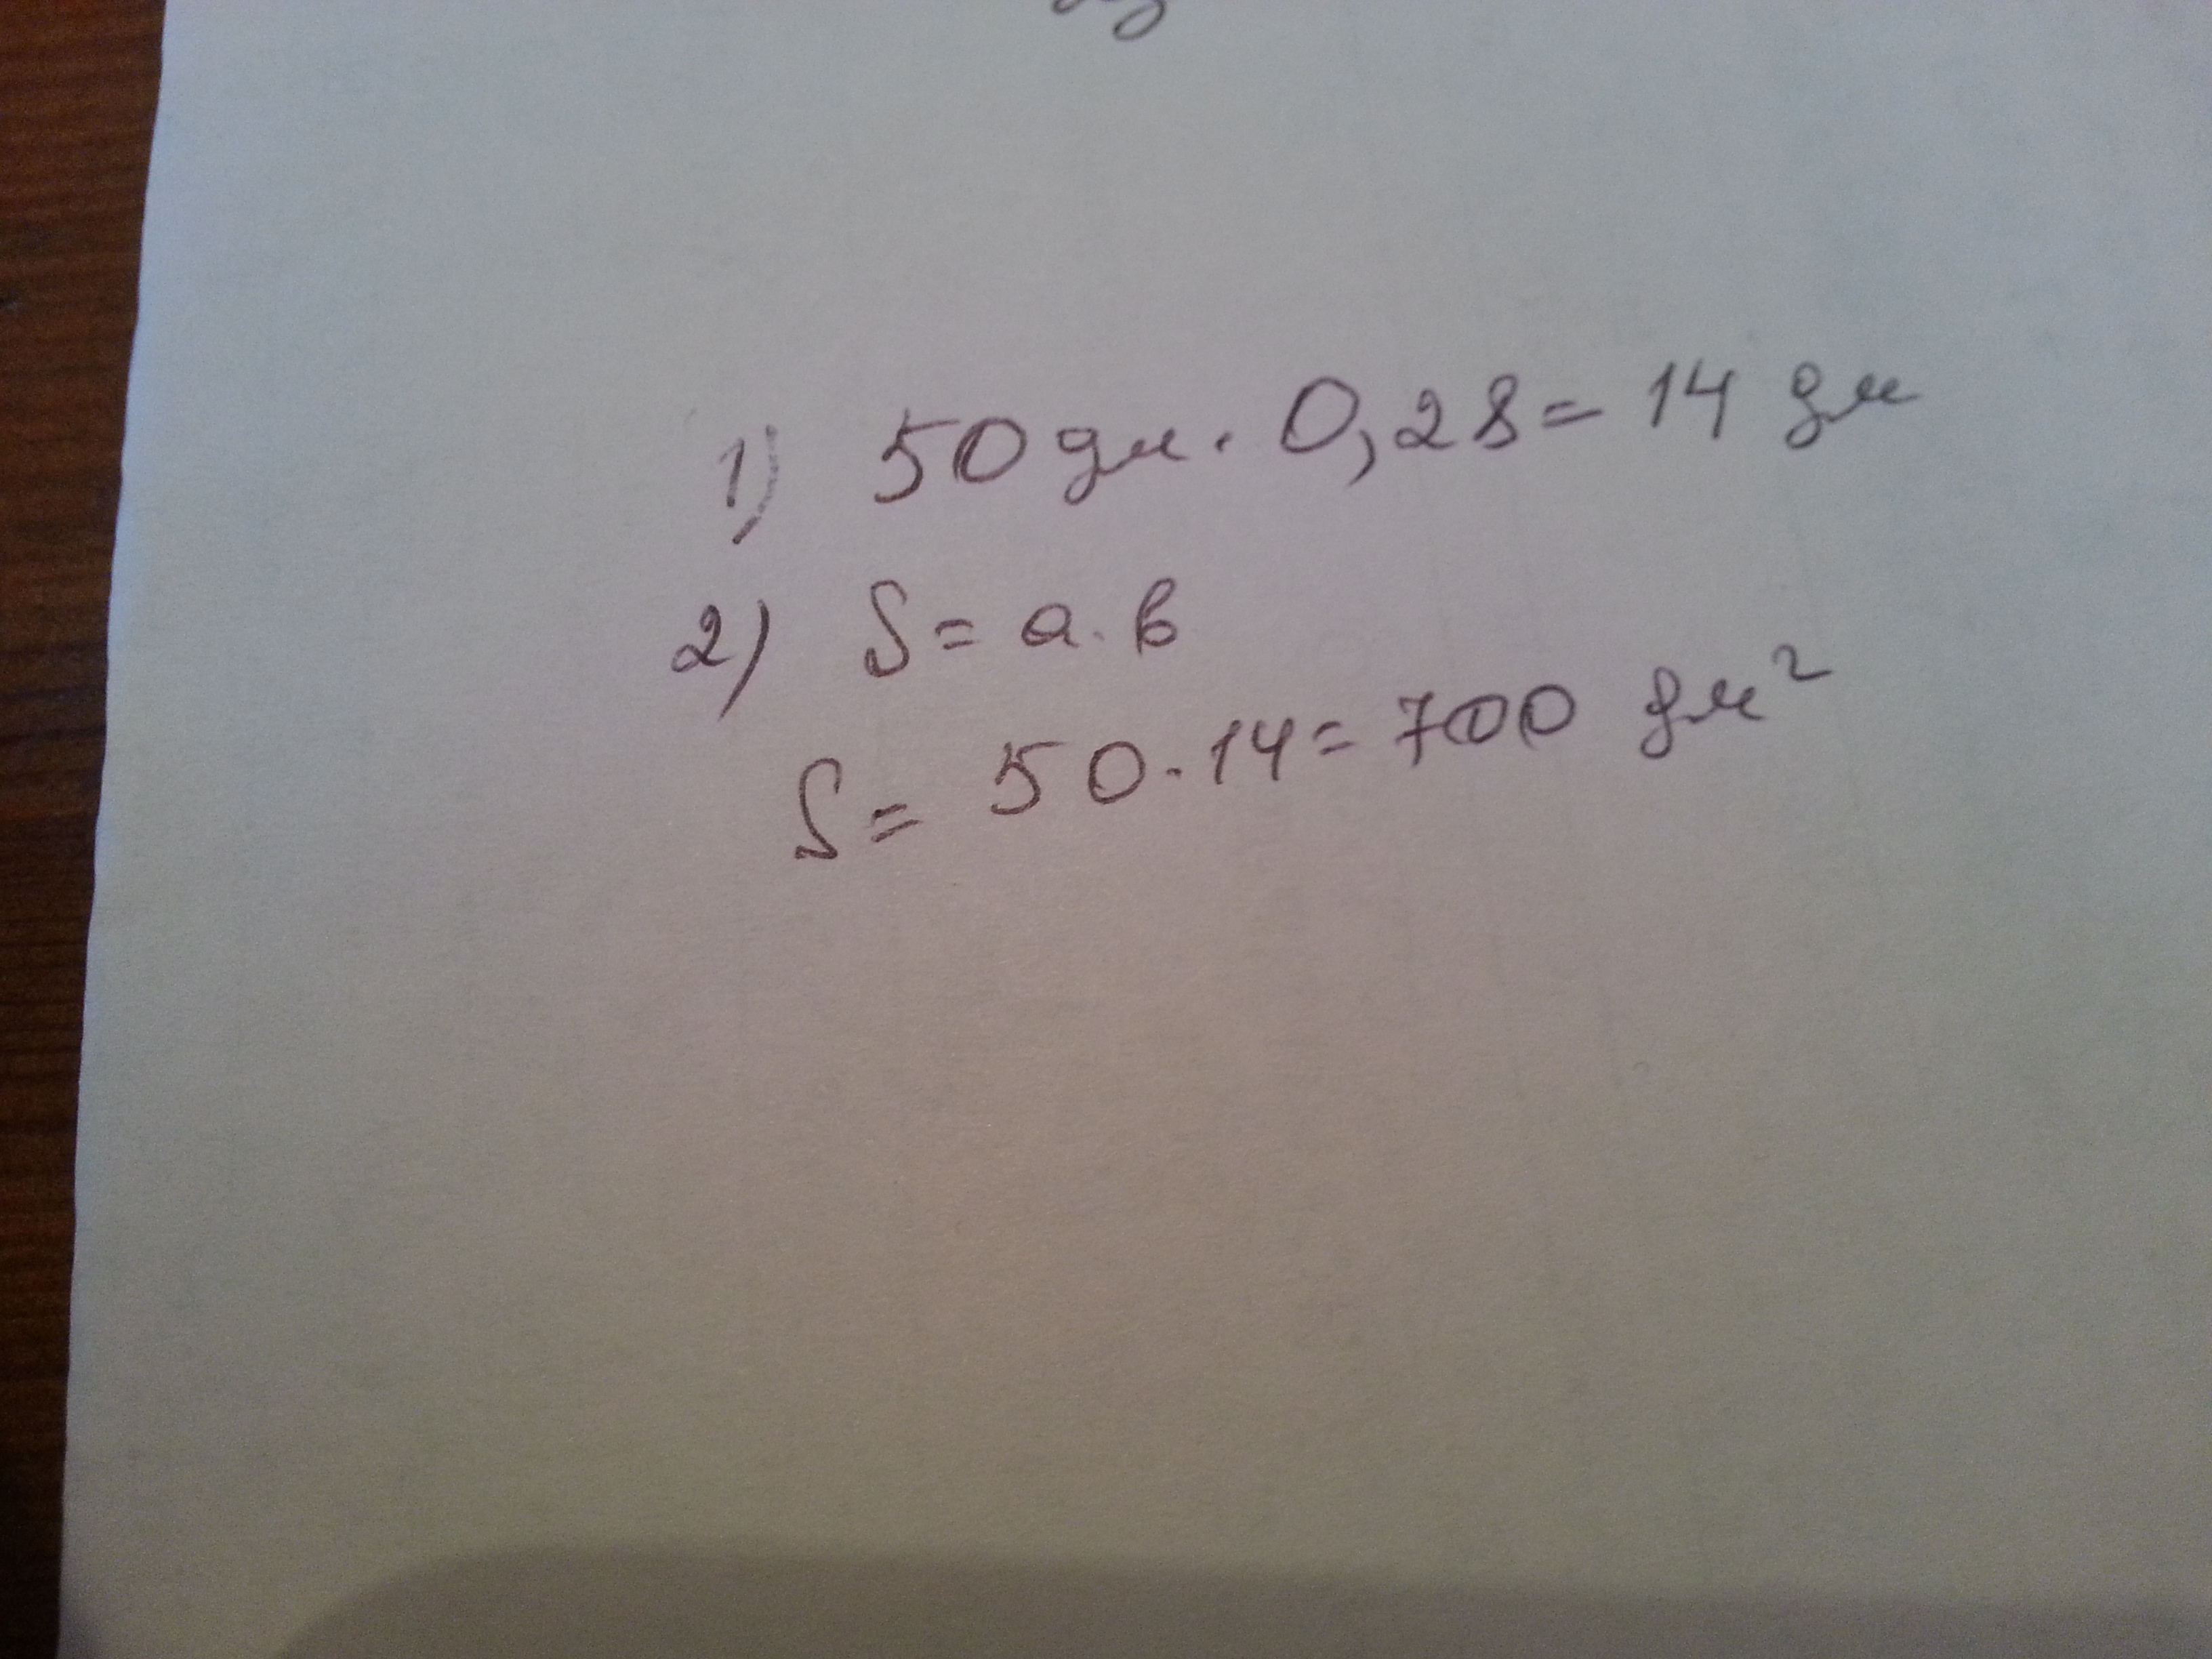 1) 50 дм · 0,28 = 14 дм
2) S = a · в
S = 50 · 14 = 700 дм²